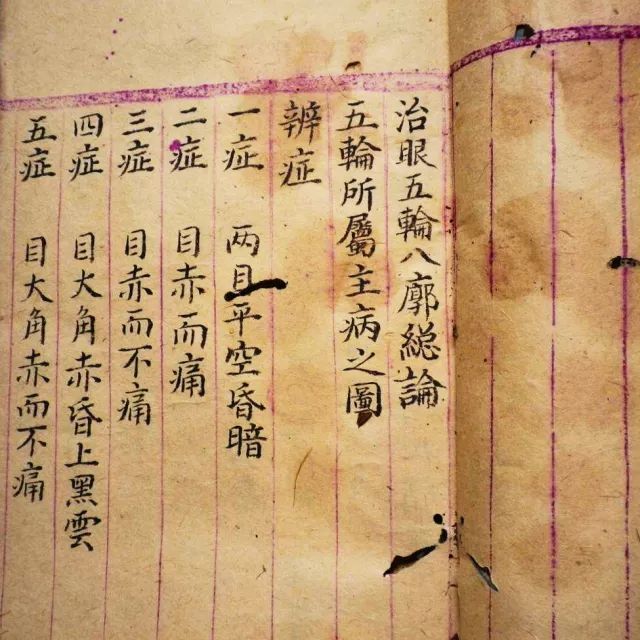 治眼五輪八廓総論
五輪所屬主病之圖
辨症
一症 两目平空昏暗
二症 目赤而痛
三症 目赤而不痛
四症 目大角赤昏上黑雲
五症 目大角赤而不痛